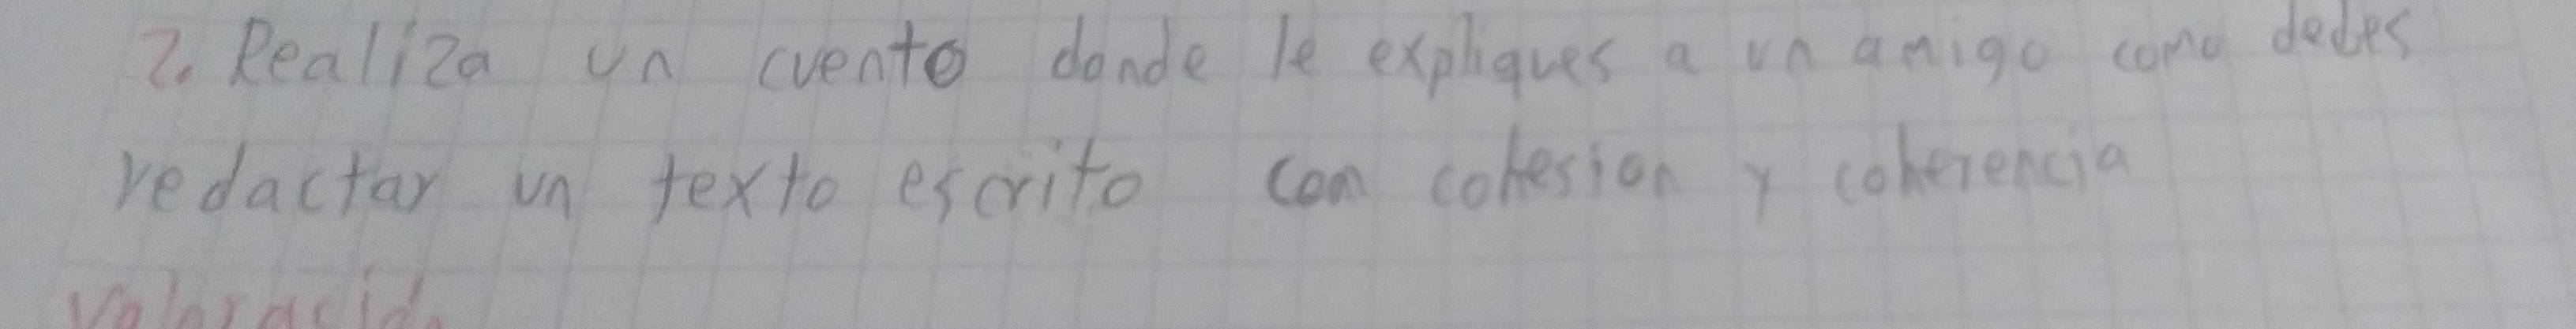 2. Realiza un cuento donde le expliques a un amigo como debes
redactar un texto escrito con cohesion y coherencia